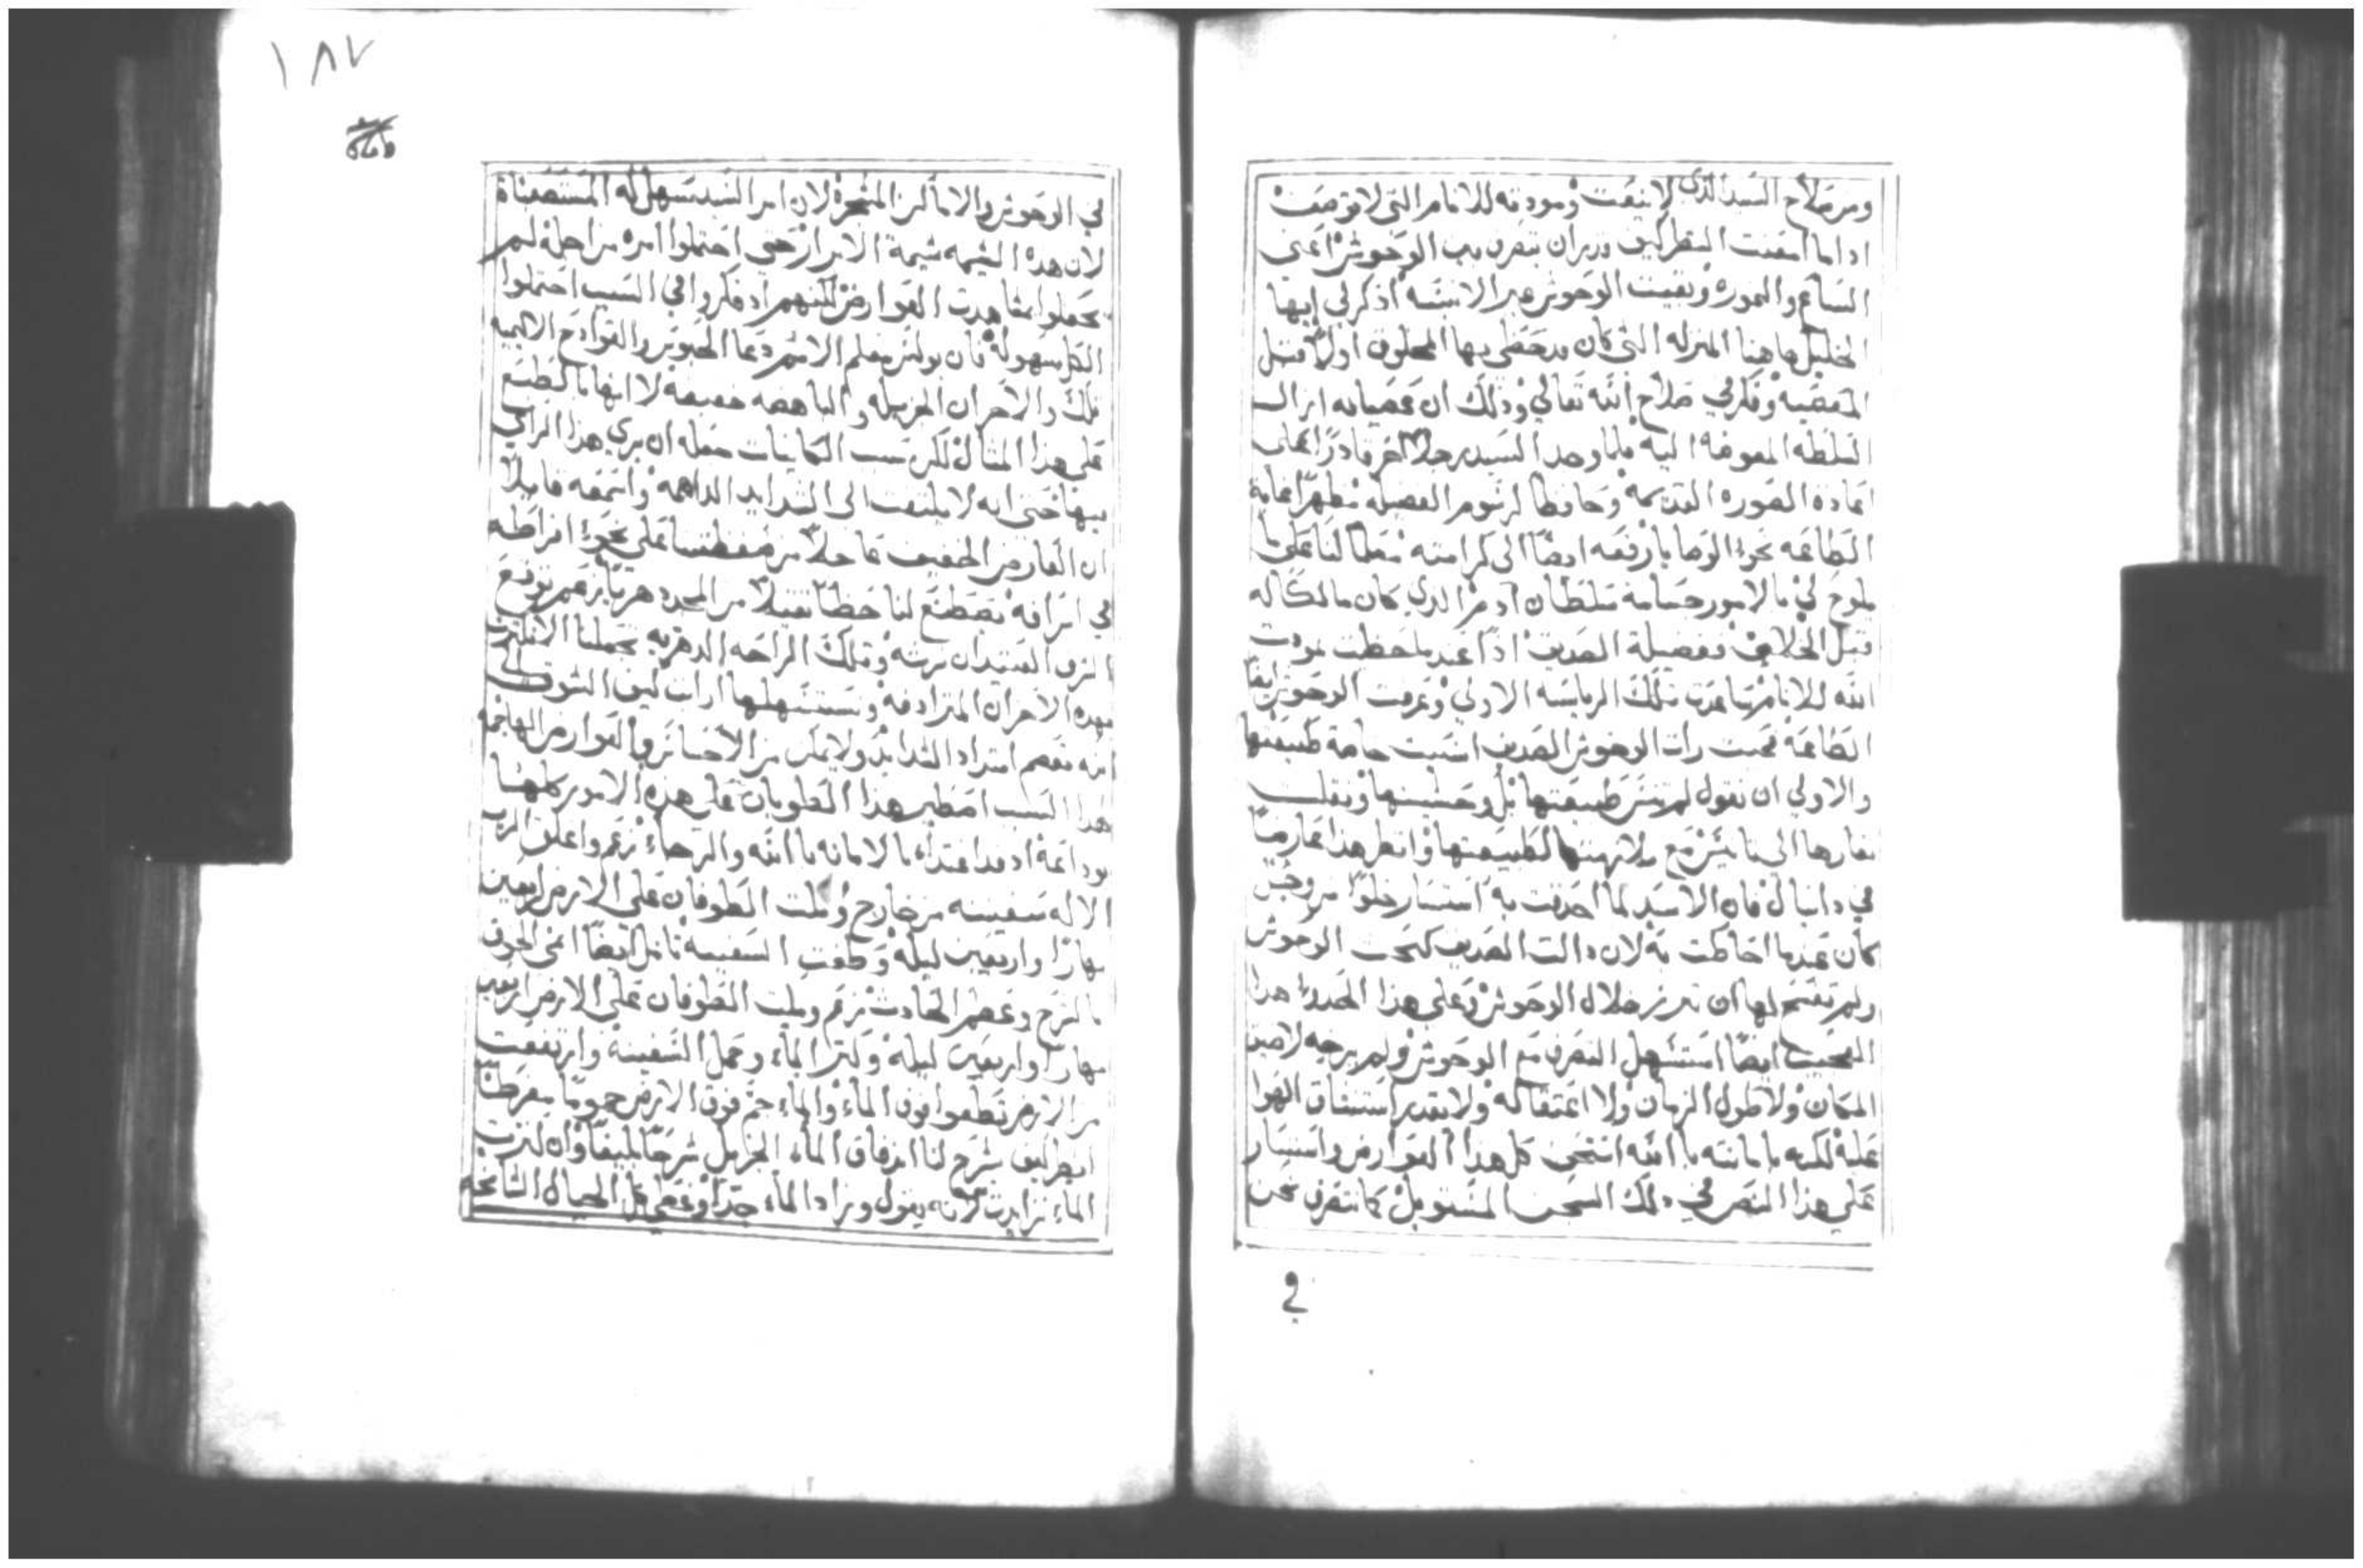 ومن صلاح السيد الذي لا ينعت ومودته للانام التي لا توصف
اذا ما امعنت النظر كيف بين الوحوش اعني
السباع والنمورة وبقيت الوحوش الانيسه اذكر لي ايها
الخليل هاهنا المنزله التي كان قد حظي بها المخلوق اولاً قبل
المعصيه وفكر في صلاح الله تعالي وذلك ان عصيانه ازال
السلطه المفوضه اليه فلما وجد السيد رجلاً اخر قادراً على
اعادة الصوره القديمه وحافظاً لرسوم الفضيله مظهراً غاية
الطاعه نحو الوصايا رفعه ايضاً الى كرامته معلماً لنا على ما
يلوح لي بالامور جسامة سلطان آدم الذي كان مالكاً له
قبل الخلاف ففضيلة الصديق اذاً عندما حظيت بمودت
الله للانام تلك الرياسه الاولي وعرفت الوحوش ايضاً
الطاعه فحيت رات الوحوش الصديق انسيت حاصة طبيعتها
والاولي ان نقول لم تنس طبيعتها بل وحشيتها ونقلت
نفارها الى تانس مع ملازمتها لطبيعتها وانظر هذا عارضاً
في دانيال فان الاسد لما احدقت به استسار خلواً من وجل
كان غنما احاطت به لان دالت الصديق كبحت الوحوش
ولم تفسح لها ان تبرز خلال الوحوش وعلي هذا الحدو هذا
العجيب ايضاً استسهل التصرف مع الوحوش ولم يزجيه لا ضيق
المكان ولا طول الزمان ولا اعتقاله ولا تقدير استنشاق الهوا
عليه لكنه بامانته بالله استحق كل هذا العوارض واستسار
علي هذا النصر في ذلك السجن المستوبل كما نتصرف نحن
في
١٨٧
في الوحوش والاماكن المشجرة لان امر السيد سهل له المستصعبات
لان هذه الشيمه شيمة الابرار حتي احتملوا امره من اجله لم
يحفلوا بمشاهدت العوارض لكنهم اذ فكروا في السبب احتملوا
الكل بسهولة فان بولس معلم الامم دعا الحبوس والقوادح الاتيه
تلك والاحزان الجزيله والباهضه خفيفة لا انها بالطبع
على هذا المثال لكن سبب الكاينات جعله ان يري هذا الراي
فيها حتى انه لا يلتفت الى الشدايد الداهمه واسمعه قايلاً
ان العارض الخفيف عاجلاً من ضغطنا على نحو افراطه
في اشرافه تصطنع لنا حظاً ثقيلاً من المجد دهرياً توقع
الشرف العتيدان نرثه وتلك الراحه الدهريه تجعلنا
بهذه الاحزان المترادفه ونستسهلها ارات كيف الشوق الى
الله تقصم اشتداد الشدايد ولا يمكن من الاحساس والعوارض الهاجمه
لهذا السبب اصطبر هذا الطوبان على هذه الامور كلها
بوداعة اذ قد اغتداه بالامانه بالله والرجاء زعم واغلق الرب
الاله سفينته من خارج ولبت الطوفان على الارض اربعين
نهاراً واربعين ليله وطفت السفينه تامل ايضاً اعني الخوف
بالشرح وعظم الحادث زعم ولبت الطوفان على الارض اربعين
نهاراً واربعين ليله وكثر الماء وحمل السفينة وارتفعت
من الارض تطفوا فوق الماء والماء جم فوق الارض جموماً مفرطاً
انظر كيف شرح لنا اندفاق الماء الجزيل شرحاً بليغاً وان لنزت
الماء تزايدت لانه يقول وزاد الماء جداً وغطي كل الجبال الشامخه